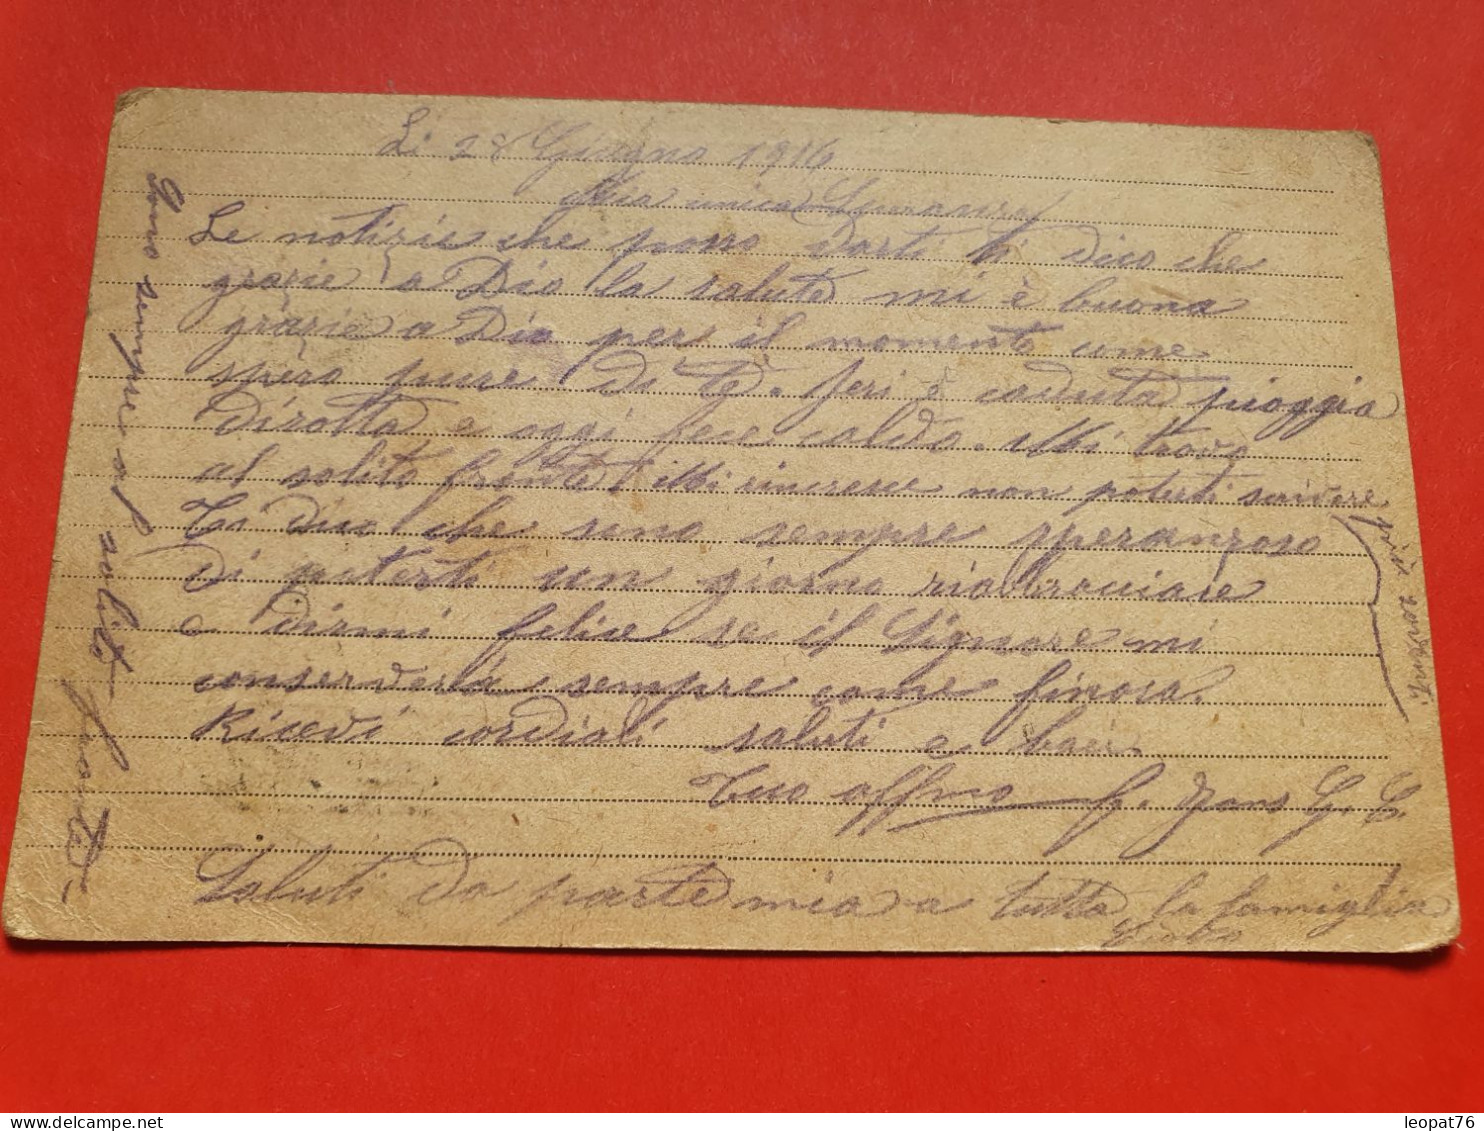 Li 28 Giugno 1916
Mia unica Speranza
Le notizie che posso darti ti dico che
grazie a Dio la salute mi è buona
grazie a Dio per il momento come
spero pure di te. Jeri è caduta pioggia
dirotta e oggi fece caldo. Mi trovo
al solito fronte. Mi incresce non poterti scrivere
più soventi
Ti dico che sono sempre speranzoso
di poterti un giorno riabbracciare
e dirmi felice se il Signore mi
conserverà sempre come finora.
Ricevi cordiali saluti e baci
Tuo affmo G. C.
Saluti da parte mia a tutta la famiglia
Sono sempre al solito fronte
leopat76
delcampe.net